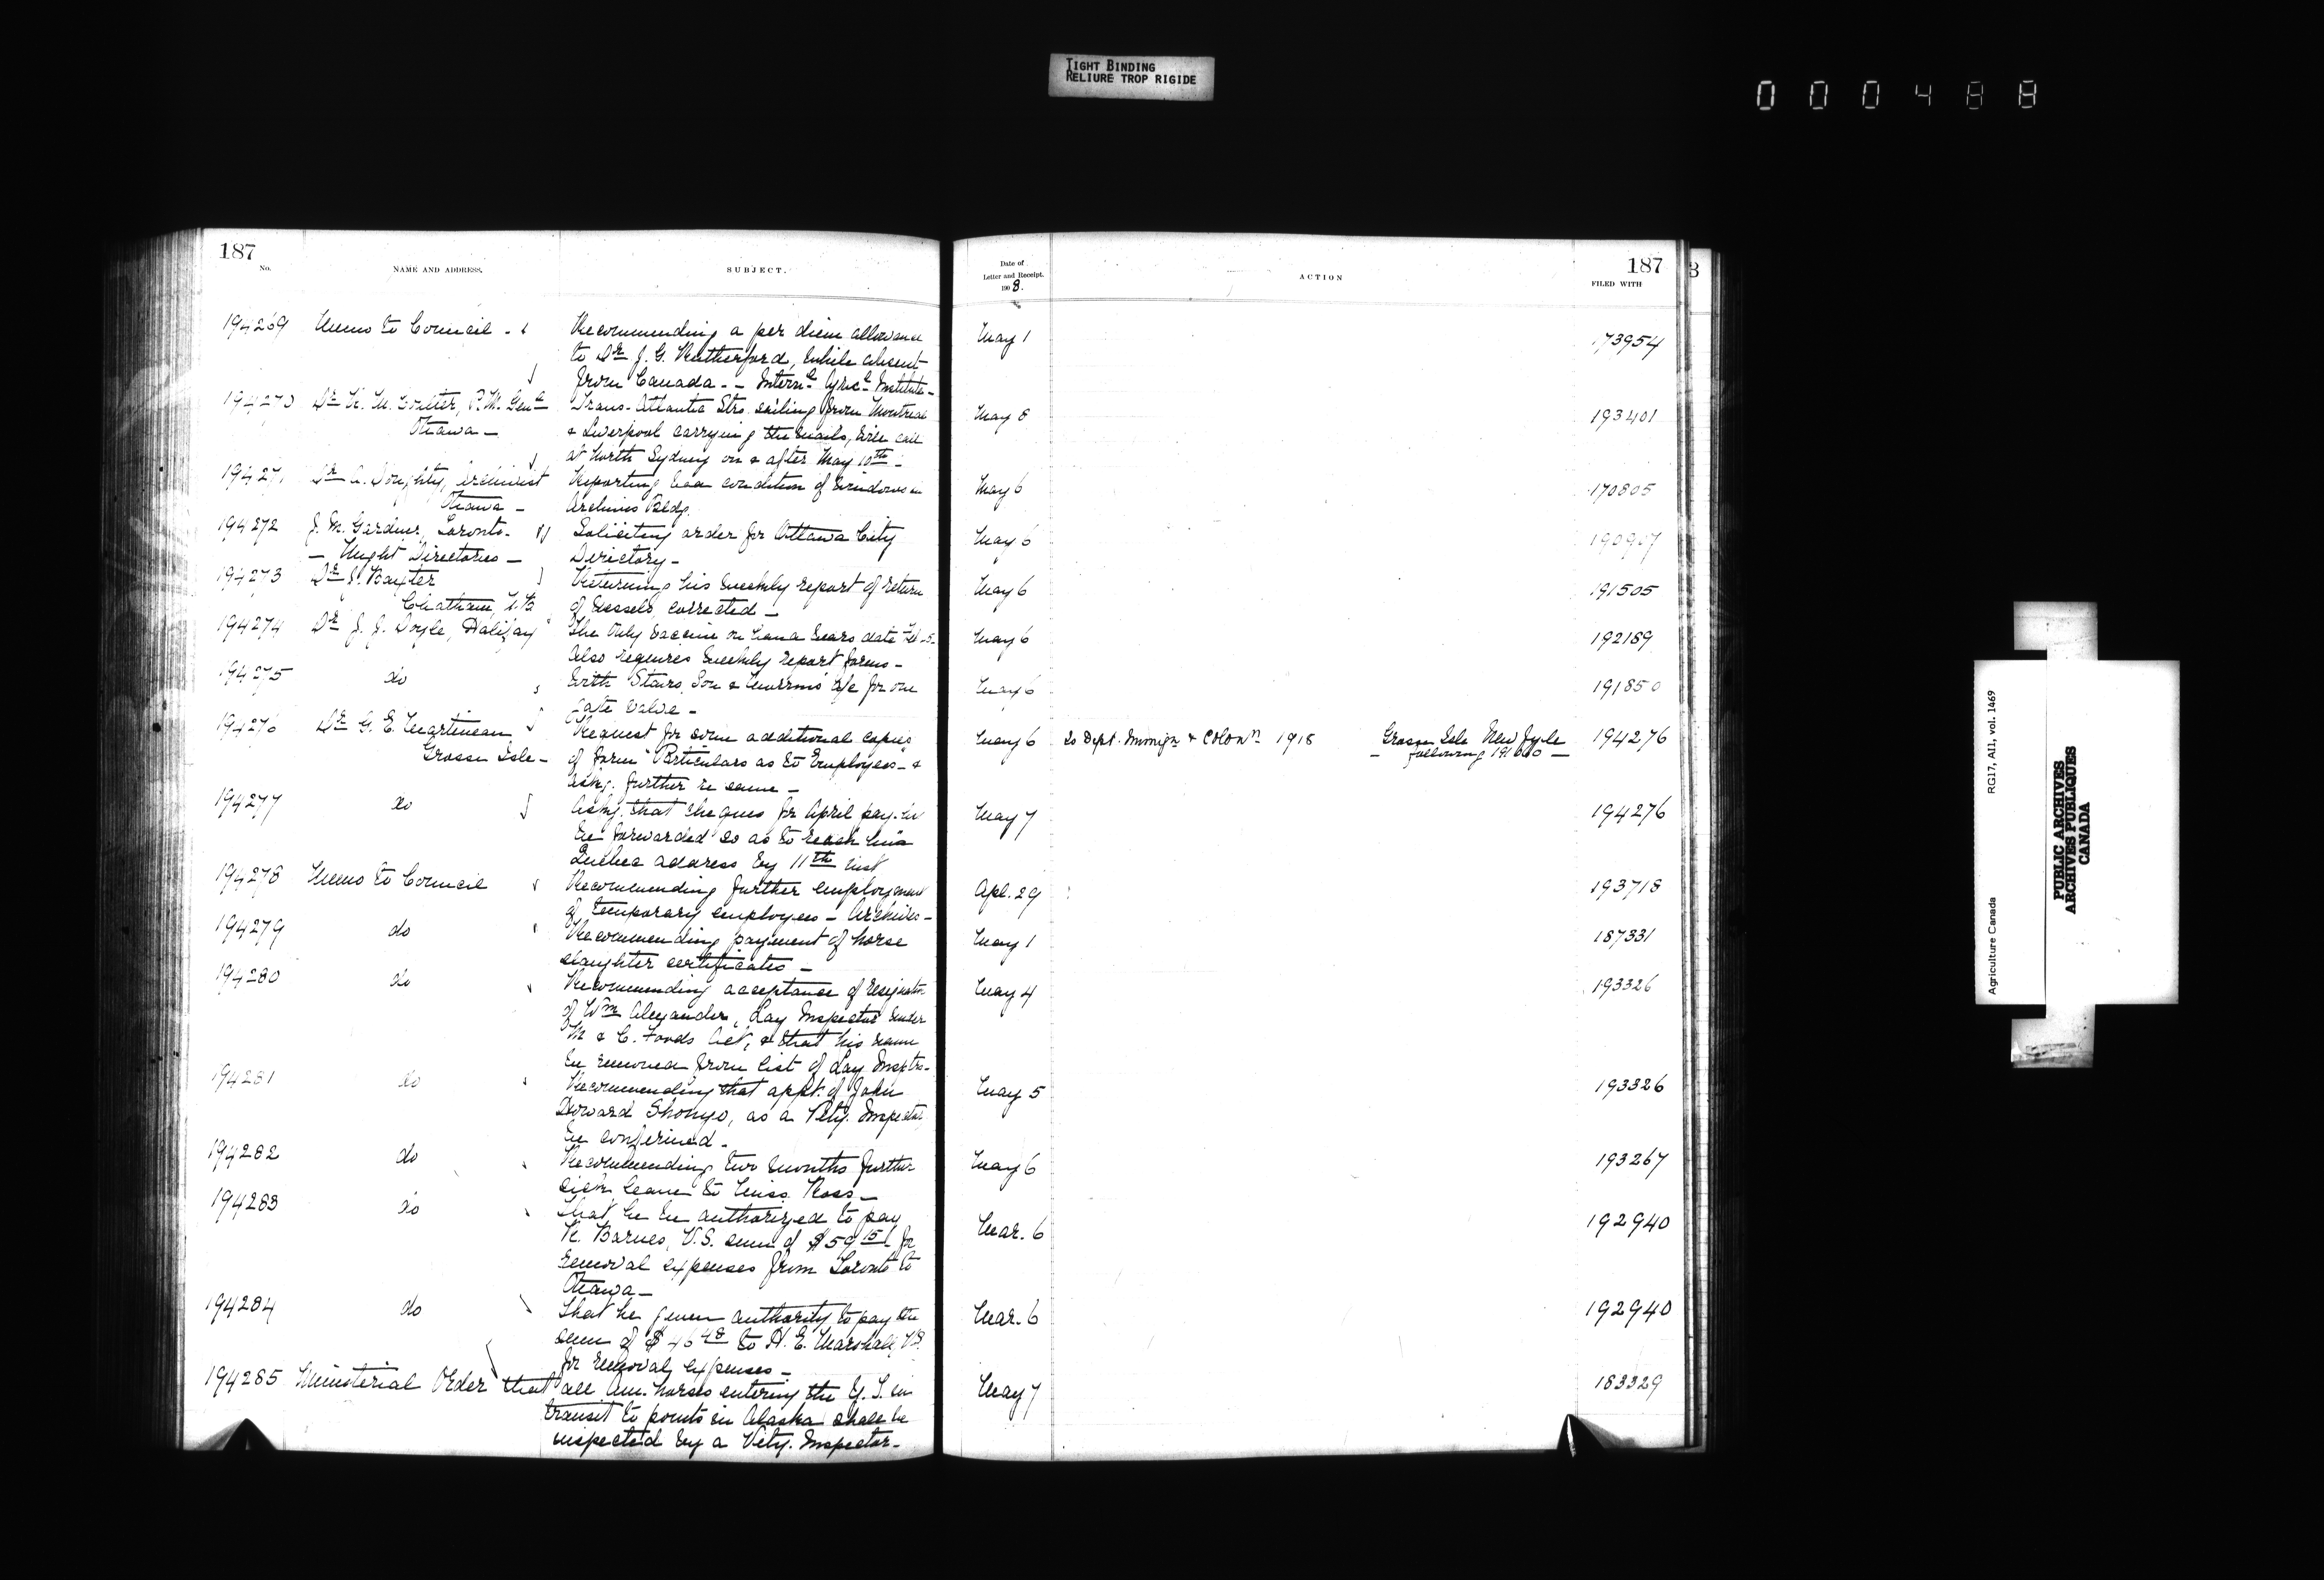 TIGHT BINDING
RELIURE TROP RIGIDE
000488
187
No.
NAME AND ADDRESS.
SUBJECT.
Date of
Letter and Receipt.
1908.
ACTION
187
FILED WITH
194269 Memo to Council - Recommending a per diem allowance May 1 173954
to Dr J. G. Rutherford, while absent
from Canada - - Internl Agricl Institute -
194270 Dr R. M. Coulter, P. M. Genl Trans-Atlantic Strs. sailing from Montreal May 8 193401
Ottawa - & Liverpool carrying the mails, will call
at North Sydney on & after May 10th -
194271 Dr A. Doughty, Archivist Reporting bad condition of windows in May 6 170805
Ottawa - Archives Bldg.
194272 J. M. Gardner, Toronto. Soliciting order for Ottawa City May 6 190907
- Might Directories - Directory -
194273 Dr J. Baxter Returning his weekly report of return May 6 191505
Chatham, N.B. of vessels, corrected -
194274 Dr J. J. Doyle, Halifax The only vaccine on hand bears date Feb May 6 192189
Also requires weekly report forms -
194275 do With Stairs, Son & Morrow's a/c for one May 6 191850
gate valve -
194276 Dr G. E. Martineau Request for some additional copies May 6 To Dept. Immign & Colonn 1918 Grosse Isle New Jyle 194276
Grosse Isle - of form "Particulars as to Employees" - & - following 191 -
askg. further re same -
194277 do Askg. that cheques for April pay-list May 7 194276
be forwarded so as to reach his
Quebec address by 11th inst
194278 Memo to Council Recommending further employment Apl. 29 193718
of temporary employees - Archives -
194279 do Recommending payment of horse May 1 187331
slaughter certificates -
194280 do Recommending acceptance of resignatn May 4 193326
of Wm Alexander, Lay Inspector under
M & C. Foods Act, & that his name
be removed from list of Lay Insptrs.
194281 do Recommending that appt. of John May 5 193326
Howard Shonyo, as a Vety. Inspector
be confirmed -
194282 do Recommending two months further May 6 193267
sick leave to Miss Ross -
194283 do That he be authorized to pay Mar. 6 192940
R. Barnes, V.S. sum of $59 15 for
removal expenses from Toronto to
Ottawa -
194284 do That he given authority to pay the Mar. 6 192940
sum of $46 48 to H. E. Marshall, VS.
for removal expenses -
194285 Ministerial Order that all Am. horses entering the Y. T. in May 7 183329
transit to points in Alaska shall be
inspected by a Vety. Inspector -
Agriculture Canada RG17, AII, vol. 1469
PUBLIC ARCHIVES
ARCHIVES PUBLIQUES
CANADA